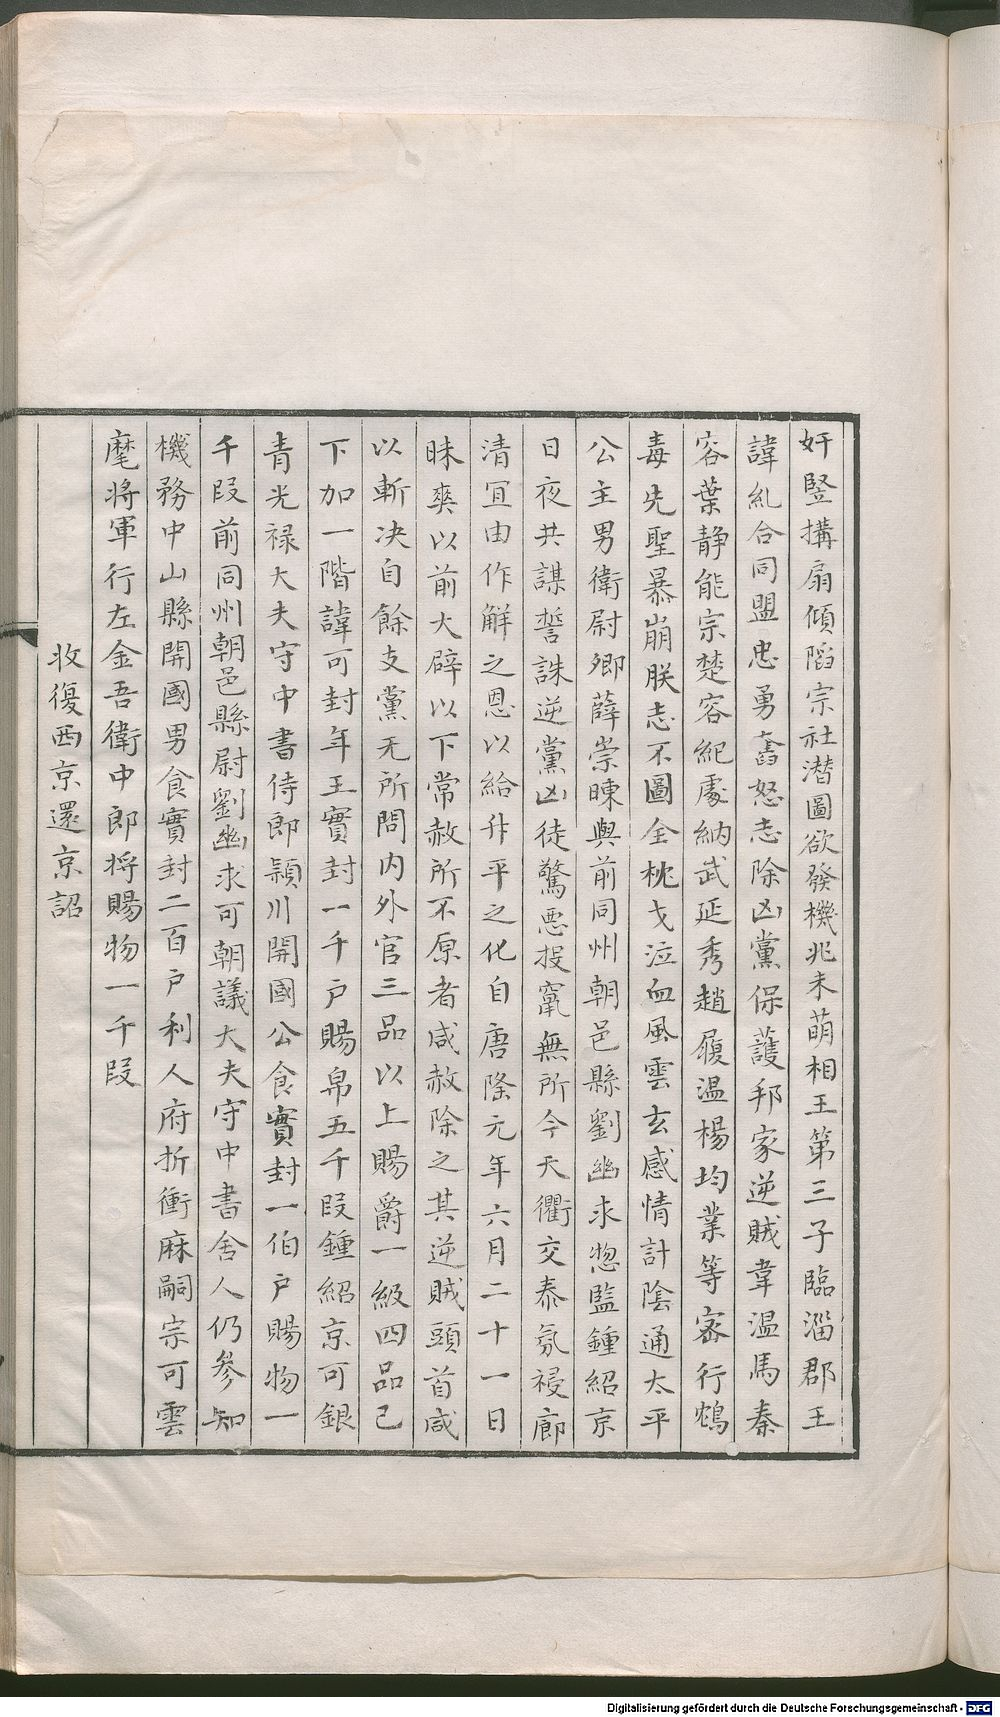 奸豎搆扇傾陷宗社潜圖欲發機兆未萌相王第三子臨淄郡王
諱糺合同盟忠勇奮怒志除凶黨保護邦家逆賊韋温馬秦
容葉静能宗楚容紀處納武延秀趙履温楊均業等密行鴆
毒先聖暴崩朕志不圖全枕戈泣血風雲玄感情計陰通太平
公主男衛尉卿薛崇暕與前同州朝邑縣劉幽求惣監鍾紹京
日夜共謀誓誅逆黨凶徒驚悪投竄無所今天衢交泰氛祲廓
清冝由作解之恩以給升平之化自唐隆元年六月二十一日
昧爽以前大辟以下常赦所不原者咸赦除之其逆賊頭首咸
以斬决自餘支黨无所問内外官三品以上賜爵一級四品已
下加一階諱可封年王實封一千户賜帛五千段鍾紹京可銀
青光禄大夫守中書侍郎潁川開國公食實封一伯户賜物一
千段前同州朝邑縣尉劉幽求可朝議大夫守中書舍人仍参知
機務中山縣開國男食實封二百户利人府折衝麻嗣宗可雲
麾將軍行左金吾衛中郎將賜物一千段
收復西京還京詔
Digitalisierung gefördert durch die Deutsche Forschungsgemeinschaft - DFG